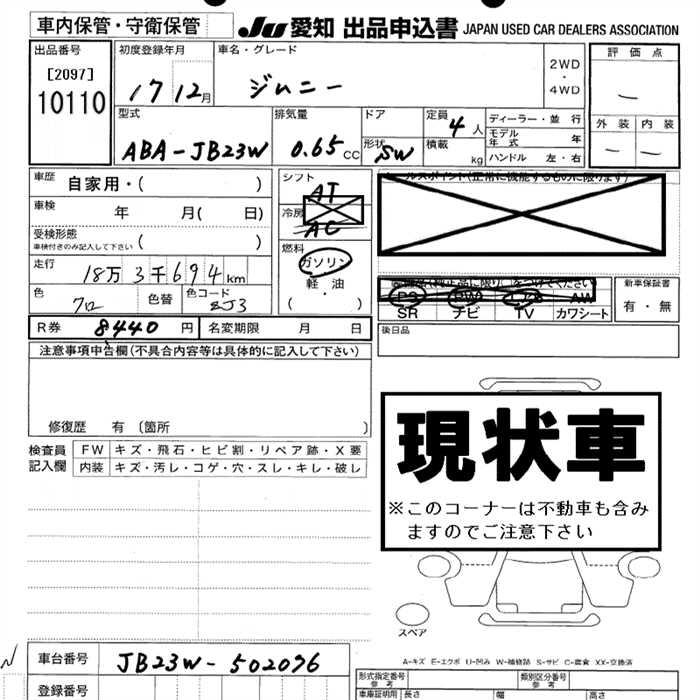 車内保管・守衛保管
JU 愛知 出品申込書 JAPAN USED CAR DEALERS ASSOCIATION
出品番号
[2097]
10110
初度登録年月
17 12月
車名・グレード
ジムニー
2WD
・
4WD
評価点
ー
外装 内装
ー ー
型式
ABA-JB23W
排気量
0.65 CC
ドア
形状 SW
定員 4 人
積載 kg
ディーラー・並 行
モデル年式 年
ハンドル 左・右
車歴 自家用・( )
車検 年 月( 日)
受検形態
車検付きのみ記入して下さい ( )
走行 18万3千694km
色 クロ 色替 色コード ZJ3
R券 8440 円 名変期限 月 日
シフト
AT
冷房
AC
燃料
ガソリン
軽・油
( ・ )
セールスポイント(正常に機能するものに限ります)
PS PW エアB AW
SR ナビ TV カワシート
新車保証書
有・無
後日品
注意事項申告欄(不具合内容等は具体的に記入して下さい)
修復歴 有〔箇所 〕
検査員記入欄
FW キズ・飛石・ヒビ割・リペア跡・X要
内装 キズ・汚レ・コゲ・穴・スレ・キレ・破レ
現状車
※このコーナーは不動車も含み
ますのでご注意下さい
スペア
A-キズ E-エクボ U-凹み W-補修跡 S-サビ C-腐食 XX-交換済
車台番号 JB23W-502076
登録番号
形式指定番号
参考
類別区分番号
参考
車庫証明用
参考
長さ 幅 高さ